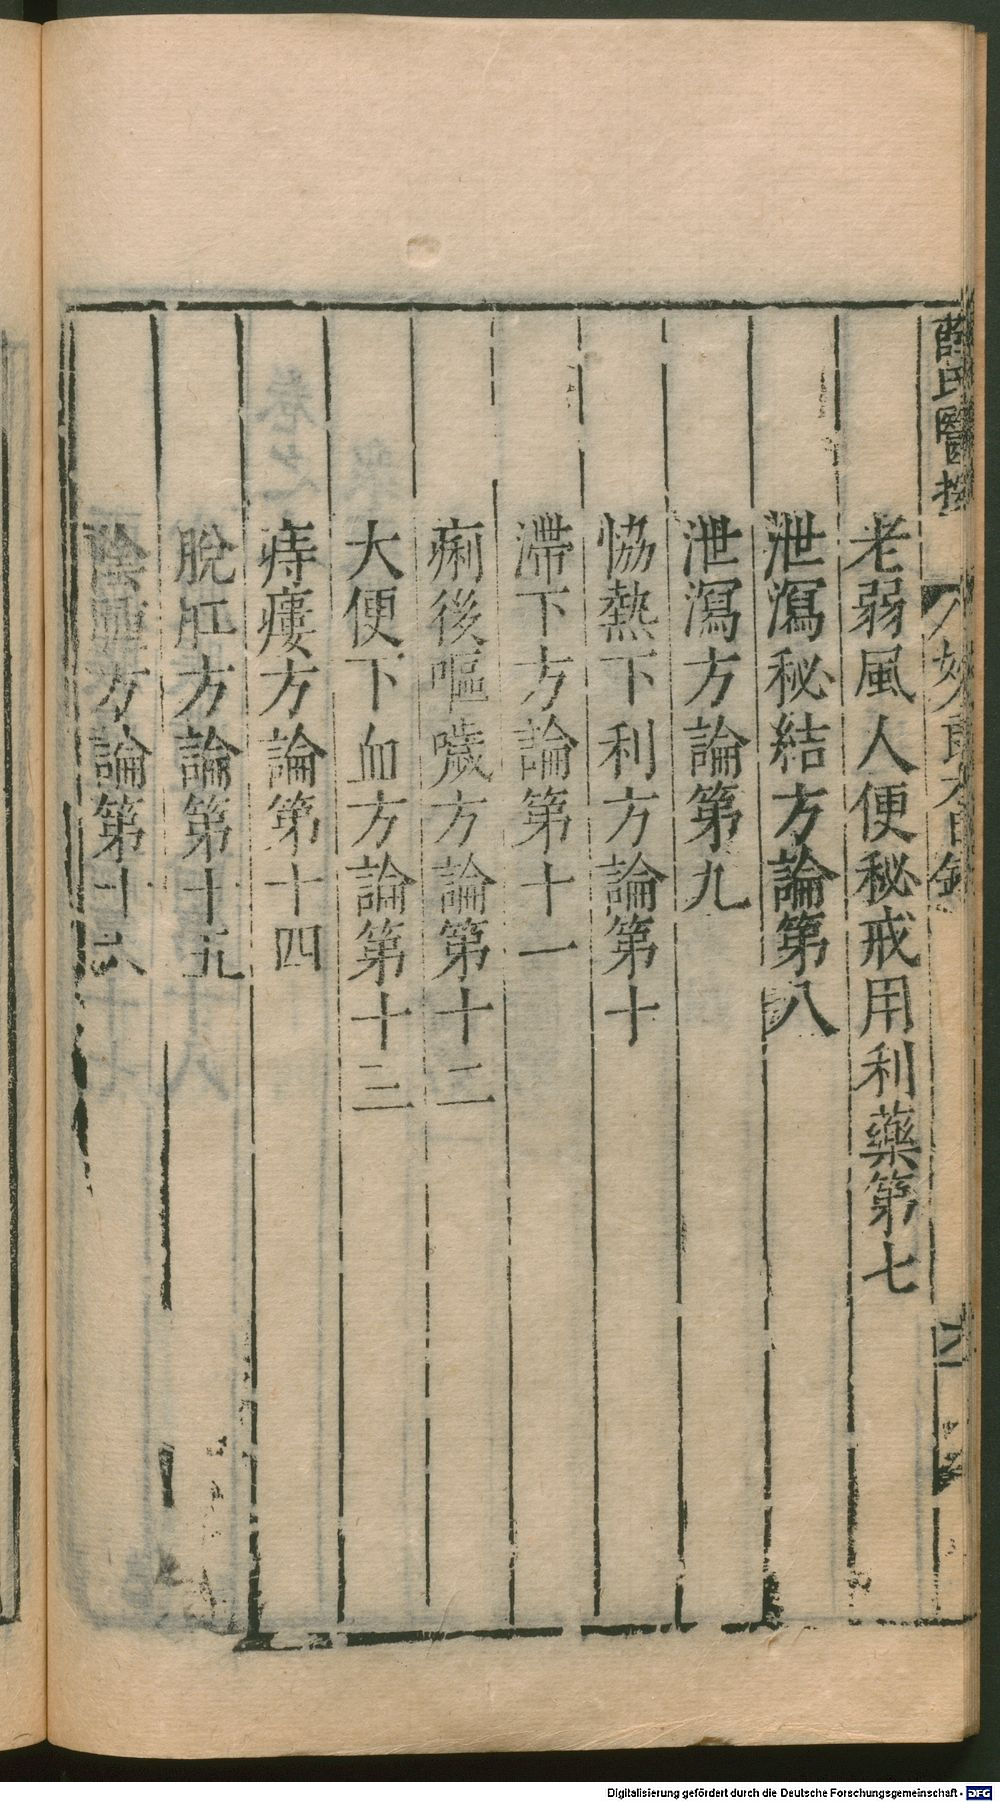 薛氏醫按 婦人良方目錄 六
老弱風人便秘戒用利藥第七
泄瀉秘結方論第八
泄瀉方論第九
恊熱下利方論第十
滯下方論第十一
痢後嘔噦方論第十二
大便下血方論第十三
痔瘻方論第十四
脫肛方論第十五
方論第十六
Digitalisierung gefördert durch die Deutsche Forschungsgemeinschaft - DFG